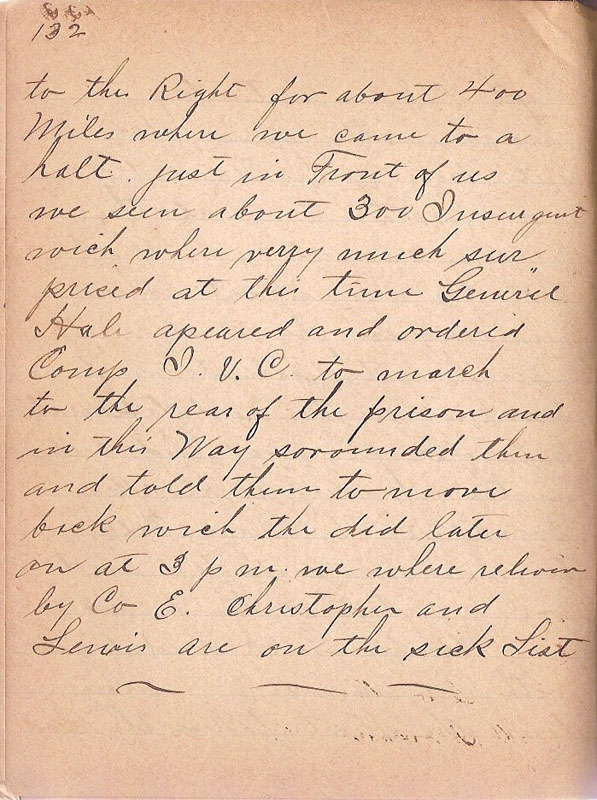 132
to the Right for about 400
Miles where we came to a
halt. just in Front of us
we seen about 300 Insurgent
wich where verry much sur
prised at this time General
Hale apeared and ordered
Comp I. V. C. to march
to the rear of the prison and
in this Way sorounded them
and told them to move
back wich the did later
on at 3 p m. we where
by Co E. Christopher and
Lewis are on the sick List